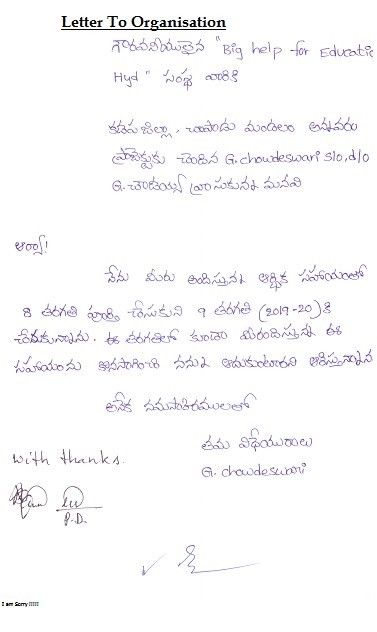 Letter To Organisation
గౌరవనీయులైన "Big help for Educatio
Hyd" సంస్థ వారికి
కడప జిల్లా, చాపాడు మండలం అన్నవరం
ప్రాజెక్టుకు చెందిన G. chowdeswari s/o, d/o
G. చౌడయ్య వ్రాసుకున్న మనవి
ఆర్యా!
నేను మీరు అందిస్తున్న ఆర్థిక సహాయంతో
8 తరగతి పూర్తి చేసుకుని 9 తరగతి (2019-20) కి
చేరుకున్నాను. ఈ తరగతిలో కుడా మీరందిస్తున్న ఈ
సహాయంను కొనసాగించి నన్ను ఆదుకుంటారని ఆశిస్తున్నాను
అనేక నమస్కారములతో
తమ విధేయురాలు
G. chowdeswari
with thanks.
P.D.
I am Sorry !!!!!